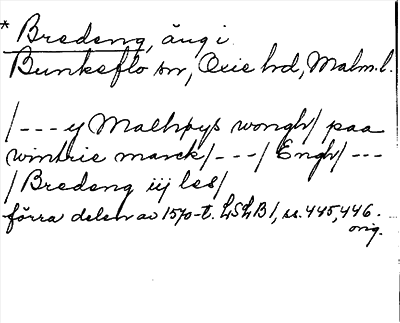 * Bredeng, äng i
Bunkeflo sn, Oxie hd, Malm. l.
/--- y Malhpys wongh/ paa
wintrie marck/ ---/ Engh/ ---
/Bredeng iij les/
förra delen av 1570-t. LSLB 1, ss. 445, 446.
orig.